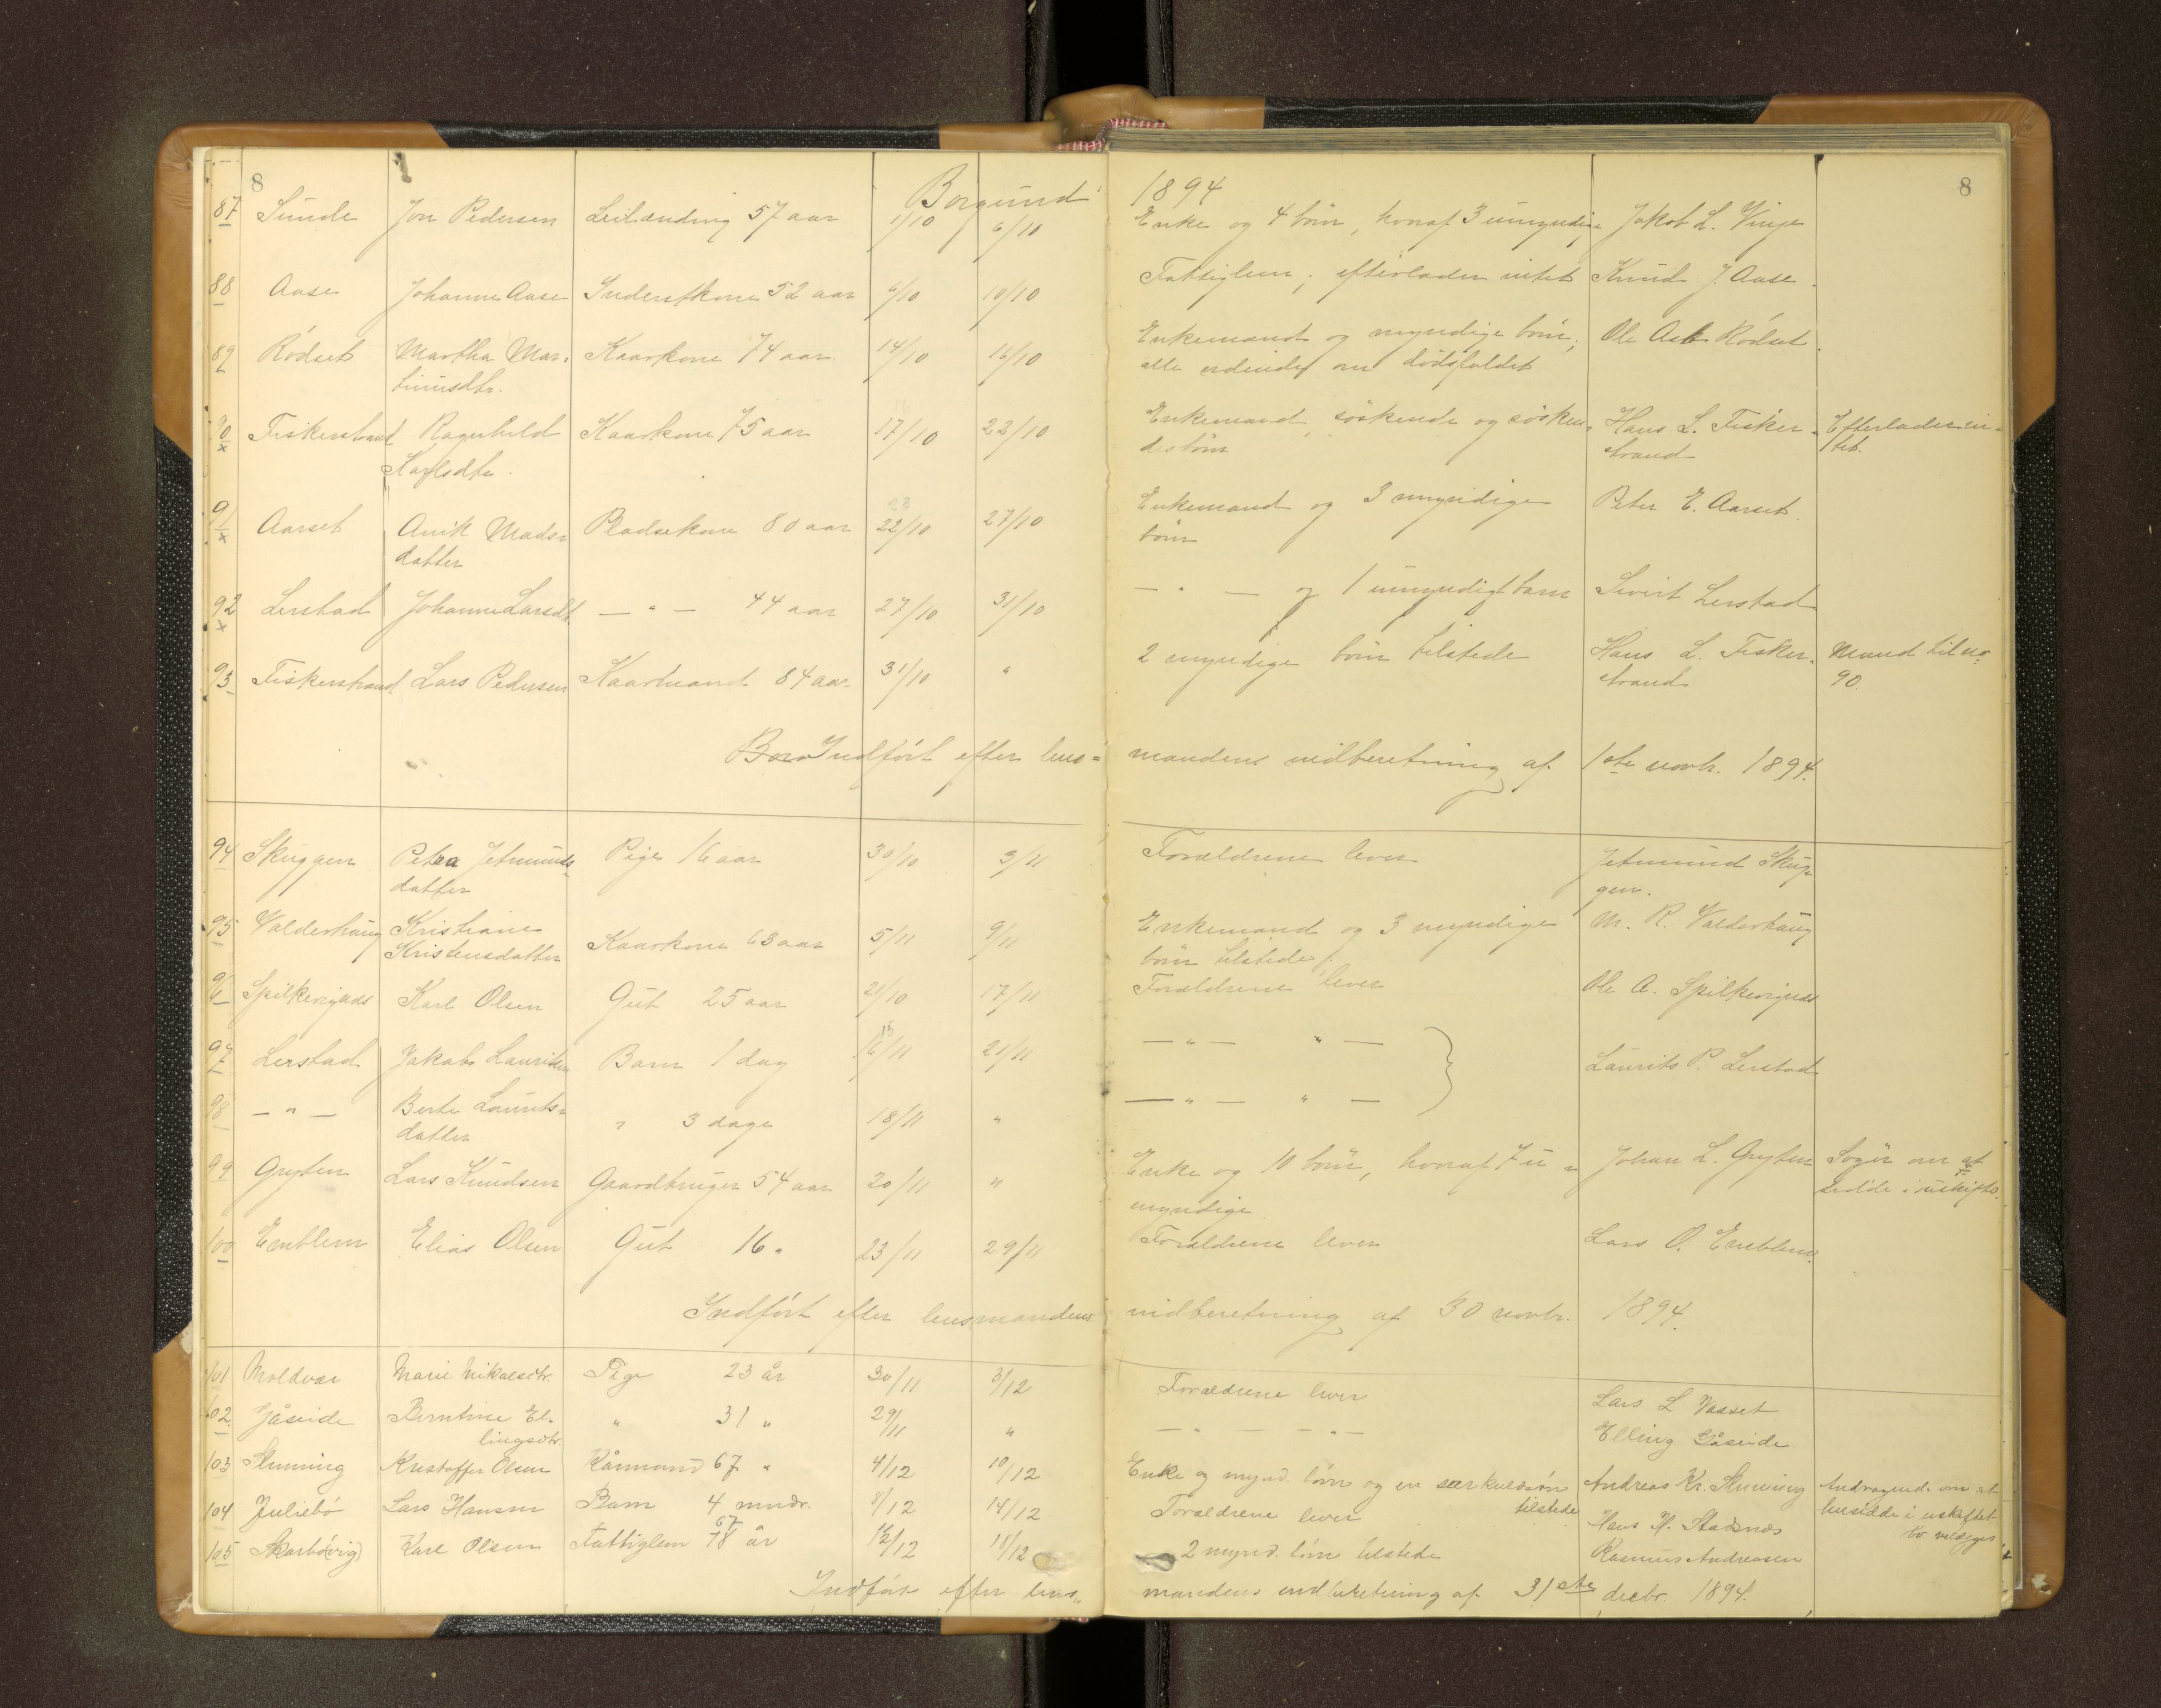 8 Borgund 1894 8
87 Sunde Jon Pedersen Leilænding 57 aar 1/10 6/10 Enke og 4 børn, hvoraf 3 umyndige Jakob L. Vinje
88 Aase Johanne Aase Inderstkone 52 aar 6/10 10/10 Fattiglem; efterlader intet Knud J. Aase
89 Rödset Martha Mar- Kaarkone 74 aar 14/10 16/10 Enkemand og myndige børn; Ole Rödset
tinusdtr. alle om dödsfaldet
90 Fiskerstrand Ragnhild Kaarkone 75 aar 17/10 22/10 Enkemand, söskende og sösken- Hans L. Fisker- Efterlader in-
x Karlsdtr. debörn strand tet.
91 Aarset Anik Mads- Pladsekone 80 aar 23 22/10 27/10 Enkemand og 3 myndige Peter E. Aarset
x datter börn
92 Lerstad Johanne Larsdt. — " — 44 aar 27/10 31/10 — " — og 1 umyndigt barn Sivert Lerstad
x
93 Fiskerstrand Lars Pedersen Kaarmand 84 aar 31/10 " 2 myndige börn tilstede Hans L. Fisker- Mand til no
strand 90
Indfört efter lens= mandens indberetning af 1ste novbr. 1894.
94 Skuggen Petra Jetmunds- Pige 16 aar 30/10 3/11 Forældrene lever Jetmund Skug-
datter gen.
95 Valderhaug Kristiane Kaarkone 63 aar 5/11 9/11 Enkemand og 3 myndige M. R. Valderhaug
Kristensdatter börn tilstede
96 Spilkevignæs Karl Olsen Gut 25 aar 21/10 17/11 Forældrene lever Ole A. Spilkevignæs
97 Lerstad Jakob Lauritsen Barn 1 dag 15 16/11 21/11 — " — " — Laurits P. Lerstad
98 — " — Berte Laurits- " 3 dage 18/11 " — " — " —
datter
99 Gryten Lars Knudsen Gaardbruger 54 aar 20/11 " Enke og 10 börn, hvoraf 7 u- Johan L. Gryten Söger om at
myndige sidde i uskifte.
100 Emblem Elias Olsen Gut 16 " 23/11 29/11 Forældrene lever Lars O. Emblem
Indfört efter lensmandens indberetning af 30 novbr. 1894.
101 Moldvær Marie Nikolsdtr. Pige 23 år 30/11 3/12 Forældrene lever Lars L Vasset
102 Gåseide Berntine El- " 31 " 29/11 " — " — " — Elling Gåseide
lingsdtr.
103 Slinning Kristoffer Olsen Kårmand 67 " 4/12 10/12 Enke og mynd. börn og en særkuldsön Andreas Kr. Slinning Andragende om at
tilstede hensidde i uskiftet
104 Juliebö Lars Hansen Barn 4 mndr. 8/12 14/12 Forældrene lever Hans H. Stadsnæs bo vedlegges
105 Skarbö(vig) Karl Olsen Fattiglem 67 78 år 12/12 18/12 2 mynd. börn tilstede Rasmus Andreasen
Indfört efter lens- mandens indberetning af 31ste decbr. 1894.